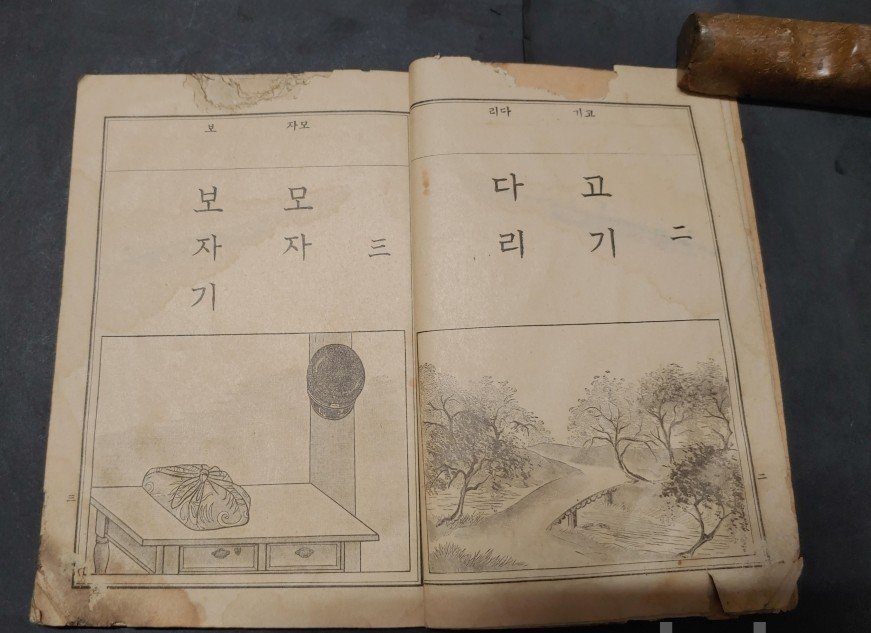 고기
다리
二
고기
다리
二
모자
보
三
모자
보자기
三